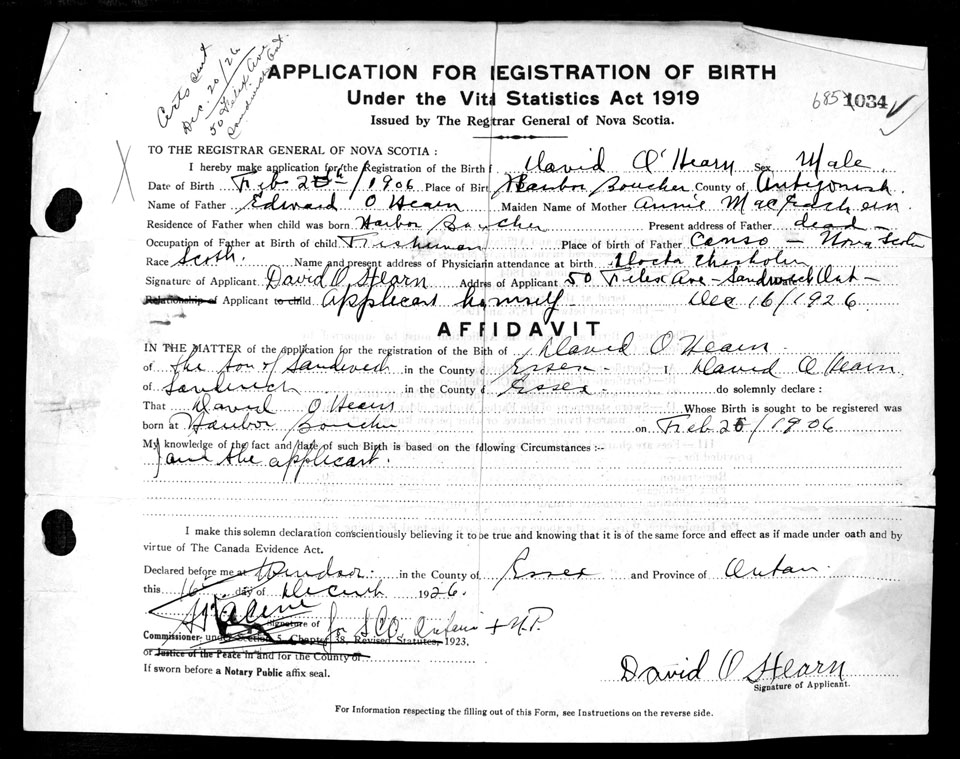 Certs sent
Dec. 20/26
50 Felix Ave
Sandwich Ont.
APPLICATION FOR EGISTRATION OF BIRTH
Under the Vita Statistics Act 1919
Issued by The Regitrar General of Nova Scotia.
6857 1034
TO THE REGISTRAR GENERAL OF NOVA SCOTIA :
I hereby make application for the Registration of the Birth f David O'Hearn Sex Male
Date of Birth Feb 25th/1906 Place of Birt Harbor Boucher County of Antigonish.
Name of Father Edward O Hearn Maiden Name of Mother Annie MacEachern
Residence of Father when child was born Harbor Boucher Present address of Father dead
Occupation of Father at Birth of child Fisherman Place of birth of Father Canso — Nova Scotia
Race Scotch. Name and present address of Physician attendance at birth Docta Chisholm
Signature of Applicant David O Hearn Addres of Applicant 50 Felix Ave — Sandwich Ont —
Relationship of Applicant to child Applicant himself. Dec 16/1926
AFFIDAVIT
IN THE MATTER of the application for the registration of the Birth of David O Hearn.
of the Town of Sandwich in the County Essex — I David O Hearn
of Sandwich in the County Essex — do solemnly declare :
That David O Hearn Whose Birth is sought to be registered was
born at Harbor Boucher on Feb 25/1906
My knowledge of the fact and date of such Birth is based on the following Circumstances :--
I am the applicant.
I make this solemn declaration conscientiously believing it to be true and knowing that it is of the same force and effect as if made under oath and by
virtue of The Canada Evidence Act.
Declared before me at Windsor. in the County of Essex and Province of Ontario.
this 16 day of December 1926.
Signature of
Commissioner under Section 5, Chapter 38, Revised Statutes, 1923.
or Justice of the Peace in and for the County of
If sworn before a Notary Public affix seal.
David O Hearn
Signature of Applicant.
For Information respecting the filling out of this Form, see Instructions on the reverse side.